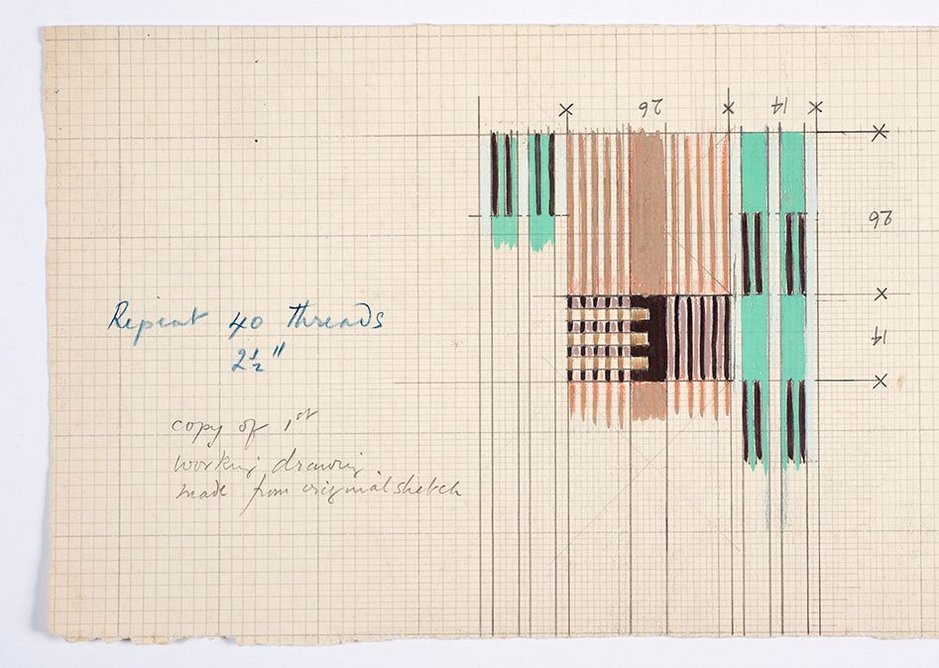 26 14
26
14
Repeat 40 threads
2½"
copy of 1st
working drawing
made from original sketch